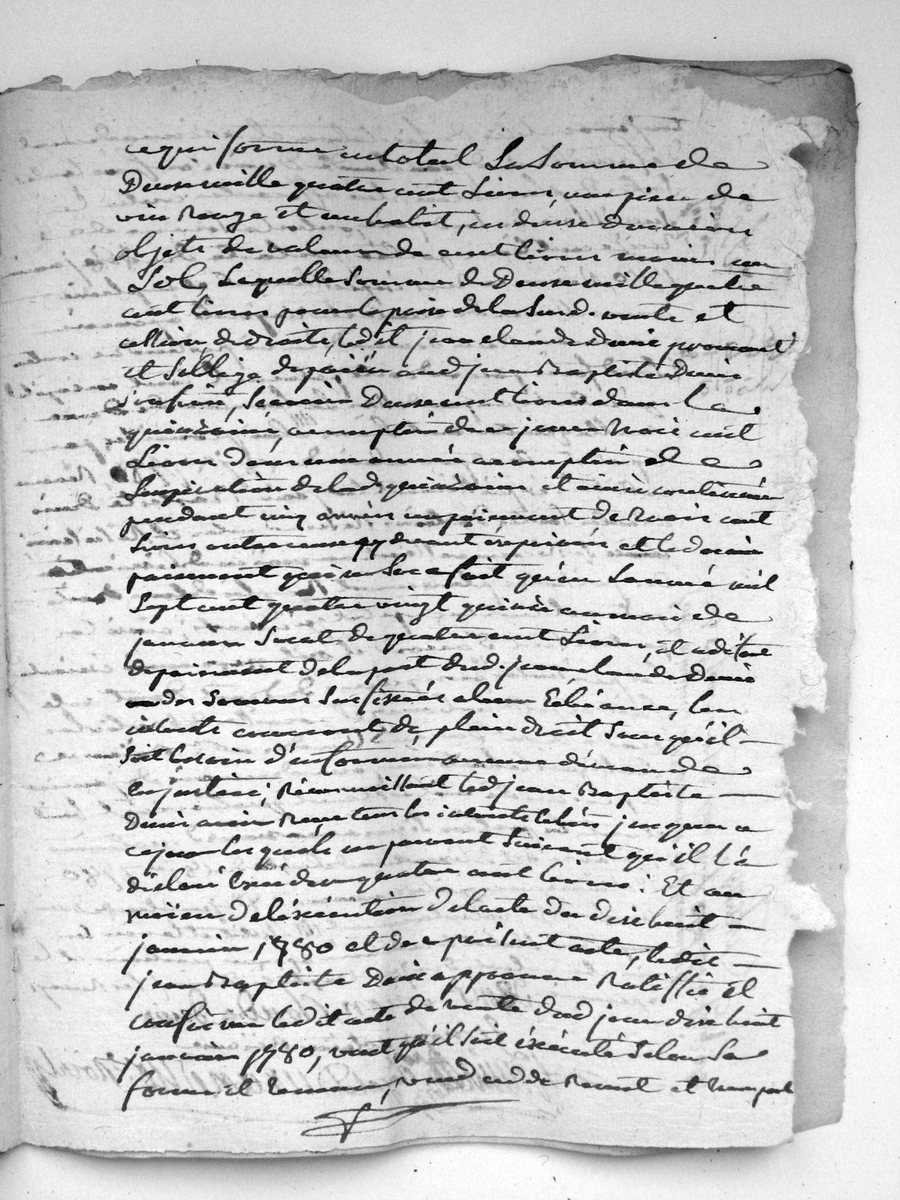 ce qui forme au total la somme de
Douse mille quatre cent livres, une piece de
vin Rouge et un habit, ces deux derniers
objets de valeur de cent livres moins un
Sol, Laquelle somme de Douse mille quatre
cent livres pour le prix de la Susd. vente et
cession de droits, ledit jean claude Davie promet
et S'oblige de païer aud. jean Baptiste Davie
Scavoir Douse cent livres dans la
quinzaine, a compter de ce jour huit cent
Livres dans une année a compter de
L'expiration de lad. quinzaine et ainsi continuer
pendant cinq années un paiement de huit cent
livres outre ceux cy devant exprimés et le dernier
paiement qui ne Sera fait qu'en L'année mil
Sept cent quatre vingt quinze au mois de
janvier Sera de quatre cent Livres, et a défaut
de paiement de la part dud. jean claude Davie
des Sommes Susfixées a leur Echéance, les
interets courront de plein droit Sans qu'il
Soit besoin d'en former aucune demande
En justice; Reconnaissant led. jean Baptiste
Davie avoir Reçu tous les interets échus jusques a
ce jour lesquels ne peuvent Suivant qu'il l'a
déclaré Excéder quatre cent livres: Et au
moïen de l'éxécution de l'acte du dixe huit
janvier 1780 et de ce présent acte, ledit
jean Baptiste Davie approuve Ratiffie et
confirme ledit acte de vente dud. jour dixe huit
janvier 1780, veut qu'il Soit éxécuté Selon Sa
forme et teneur, et